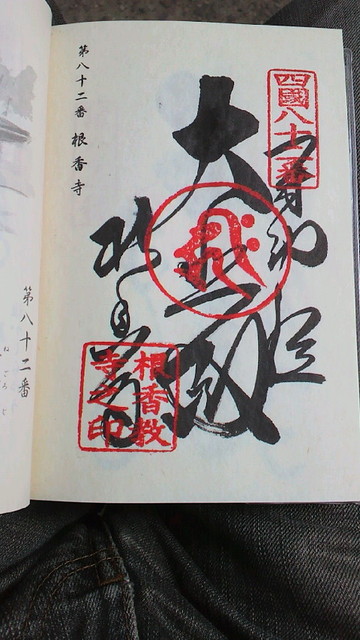 四國八十二番
奉納経
大
根香寺
根香教
寺之印
第八十二番 根香寺
第八十二番
ねごろじ